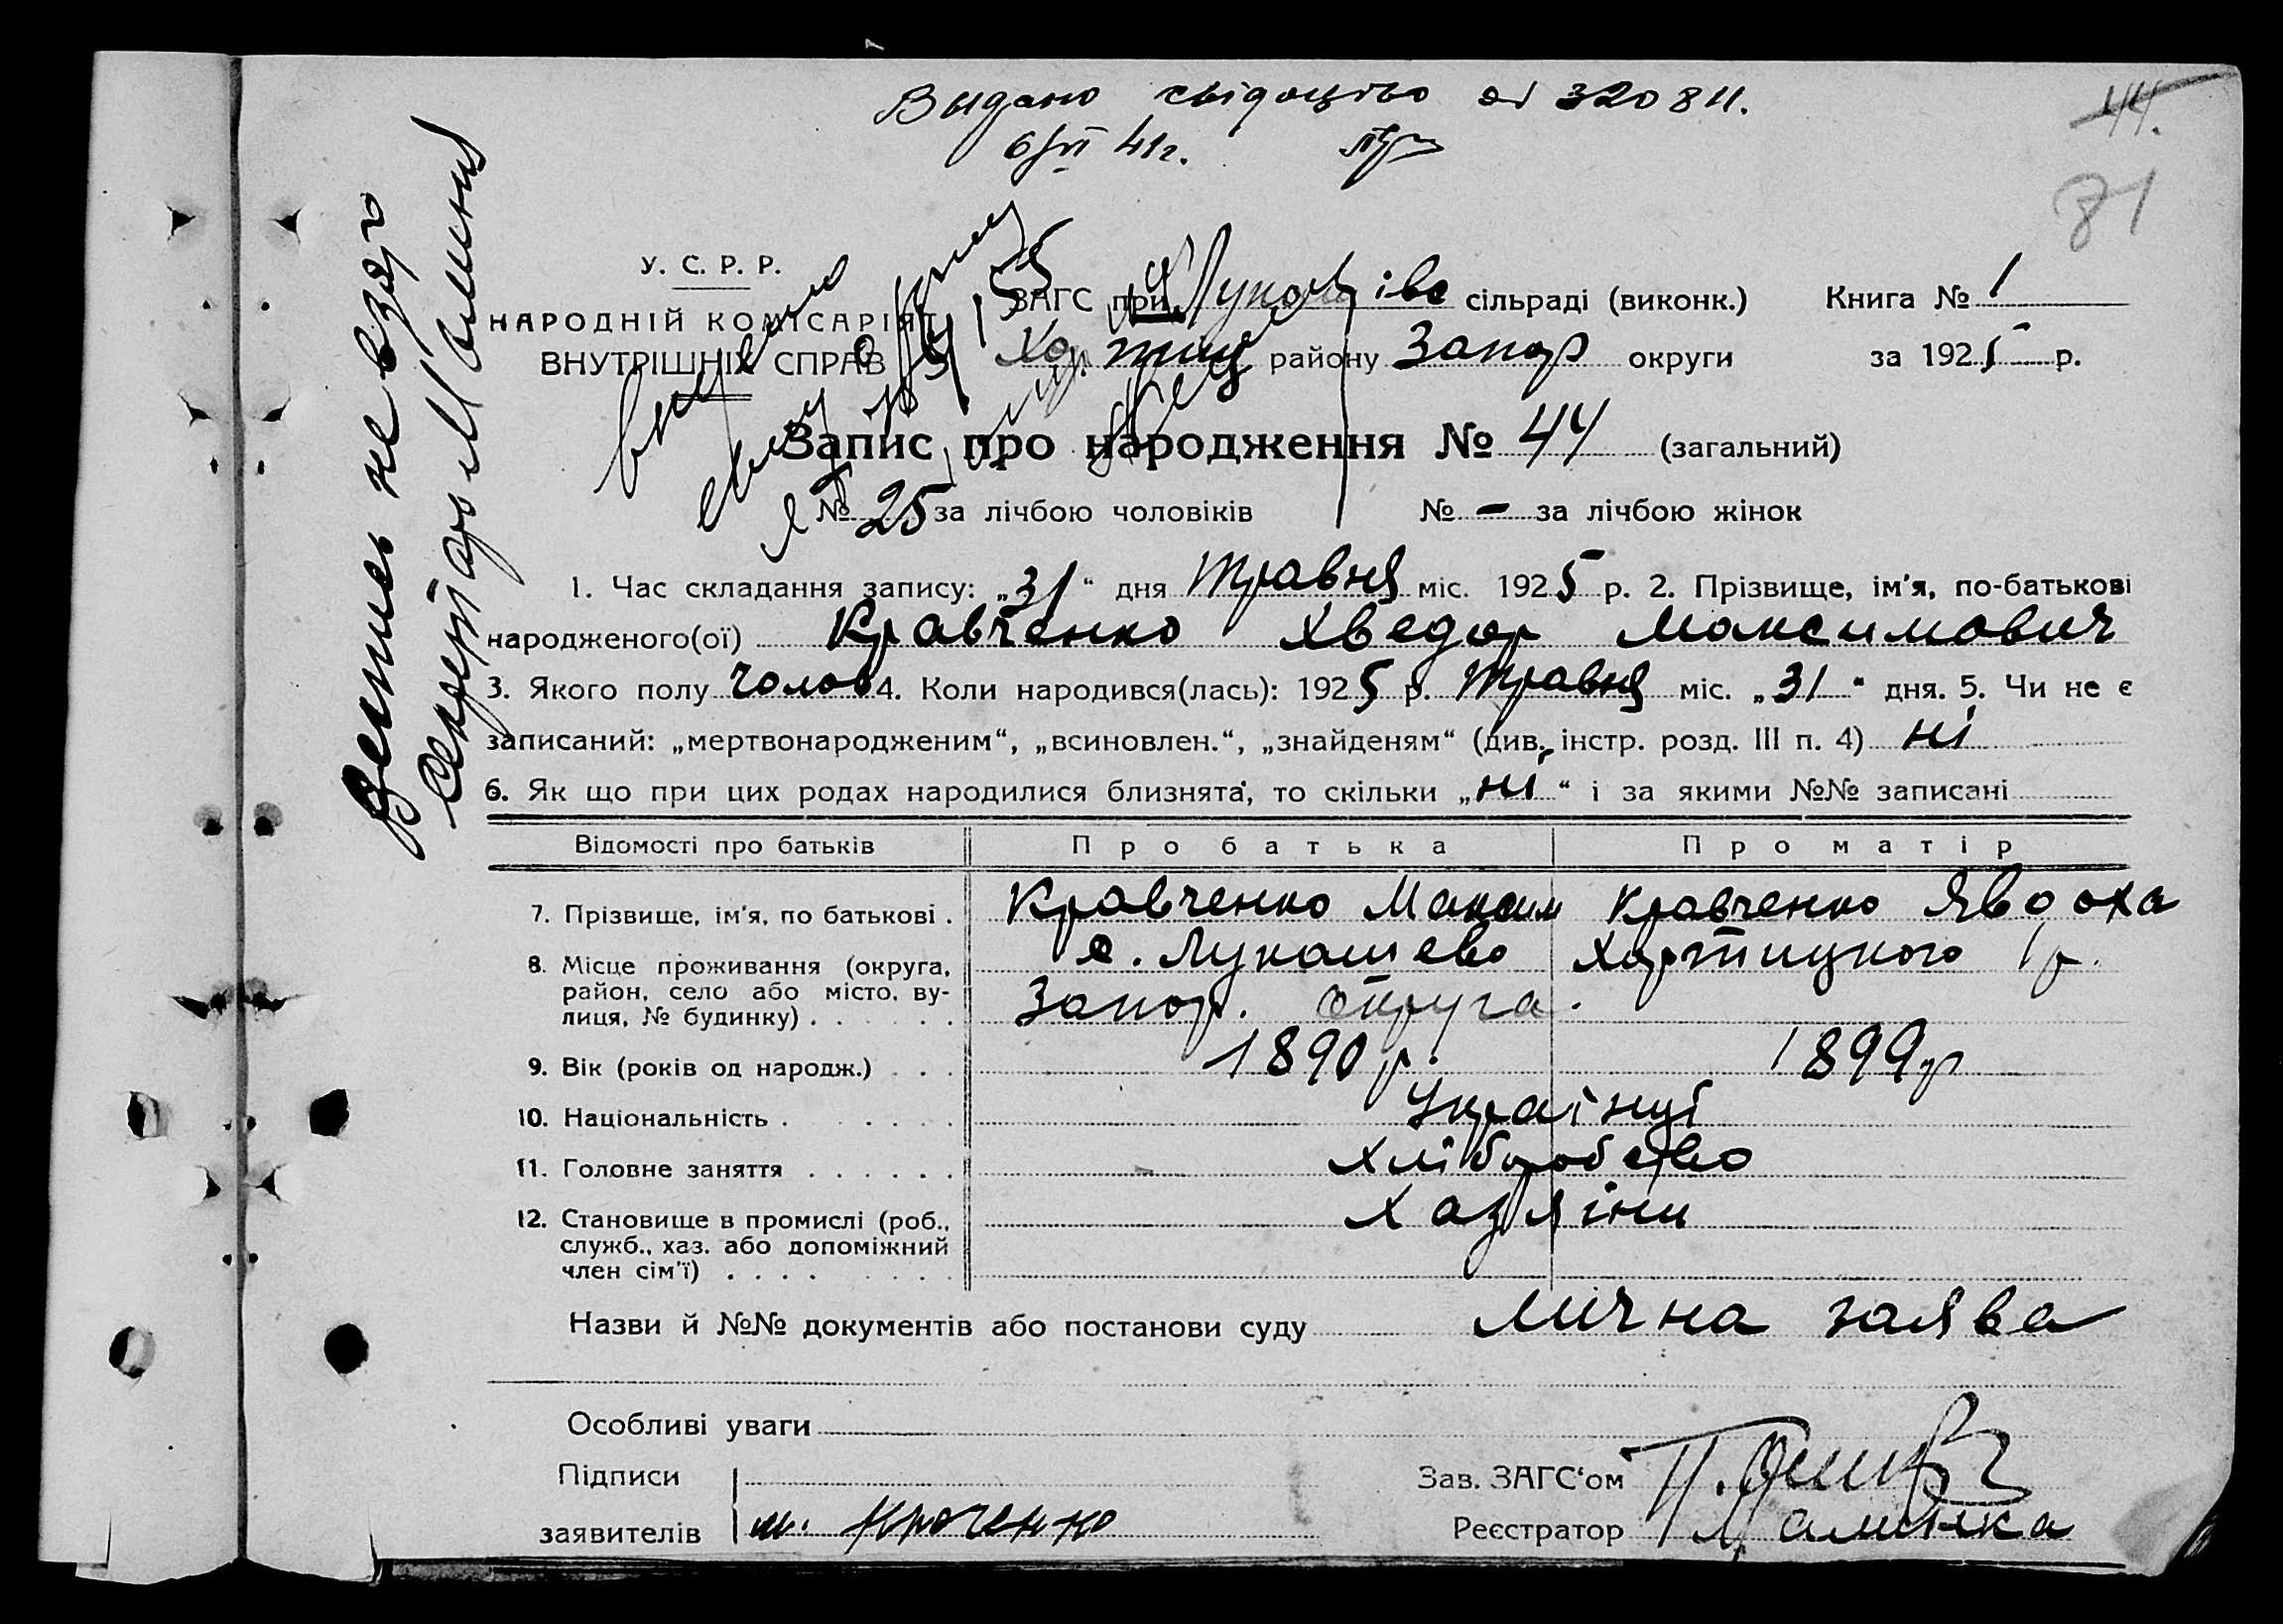 Выдано свідоцтво
6/VI 41г.
44.
81
Витись не взято
Секретарь
У. С. Р. Р.
НАРОДНІЙ КОМІСАРІЯТ
ВНУТРІШНІХ СПРАВ
ЗАГС при Лукашівс сільраді (виконк.) Книга № 1
Хортиц району Запор округи за 1925 р.
Запис про народження № 44 (загальний)
№ 25 за лічбою чоловіків № – за лічбою жінок
1. Час складання запису: „31“ дня Травня міс. 1925 р. 2. Прізвище, ім'я, по-батькові
народженого(ої) Кравченко Хведор Максимович
3. Якого полу Чолов 4. Коли народився(лась): 1925 р. Травня міс. „31“ дня. 5. Чи не є
записаний: „мертвонародженим“, „всиновлен.“, „знайденям“ (див. інстр. розд. III п. 4) ні
6. Як що при цих родах народилися близнята, то скільки „ні“ і за якими №№ записані
Відомості про батьків Про батька Про матір
7. Прізвище, ім'я, по батькові . Кравченко Максим Кравченко Явдоха
8. Місце проживання (округа, с. Лукашево Хортицкого р.
район, село або місто, ву- Запор. округа.
лиця, № будинку) . . . . . .
9. Вік (років од народж.) . . . 1890 р. 1899 р
10. Національність . . . . . . Українці
11. Головне заняття . . . . . . Хліборобство
12. Становище в промислі (роб., Хазяіни
служб., хаз. або допоміжний
член сім'ї) . . . .
Назви й №№ документів або постанови суду Лична заява
Особливі уваги
Підписи Зав. ЗАГС'ом
заявителів Реєстратор